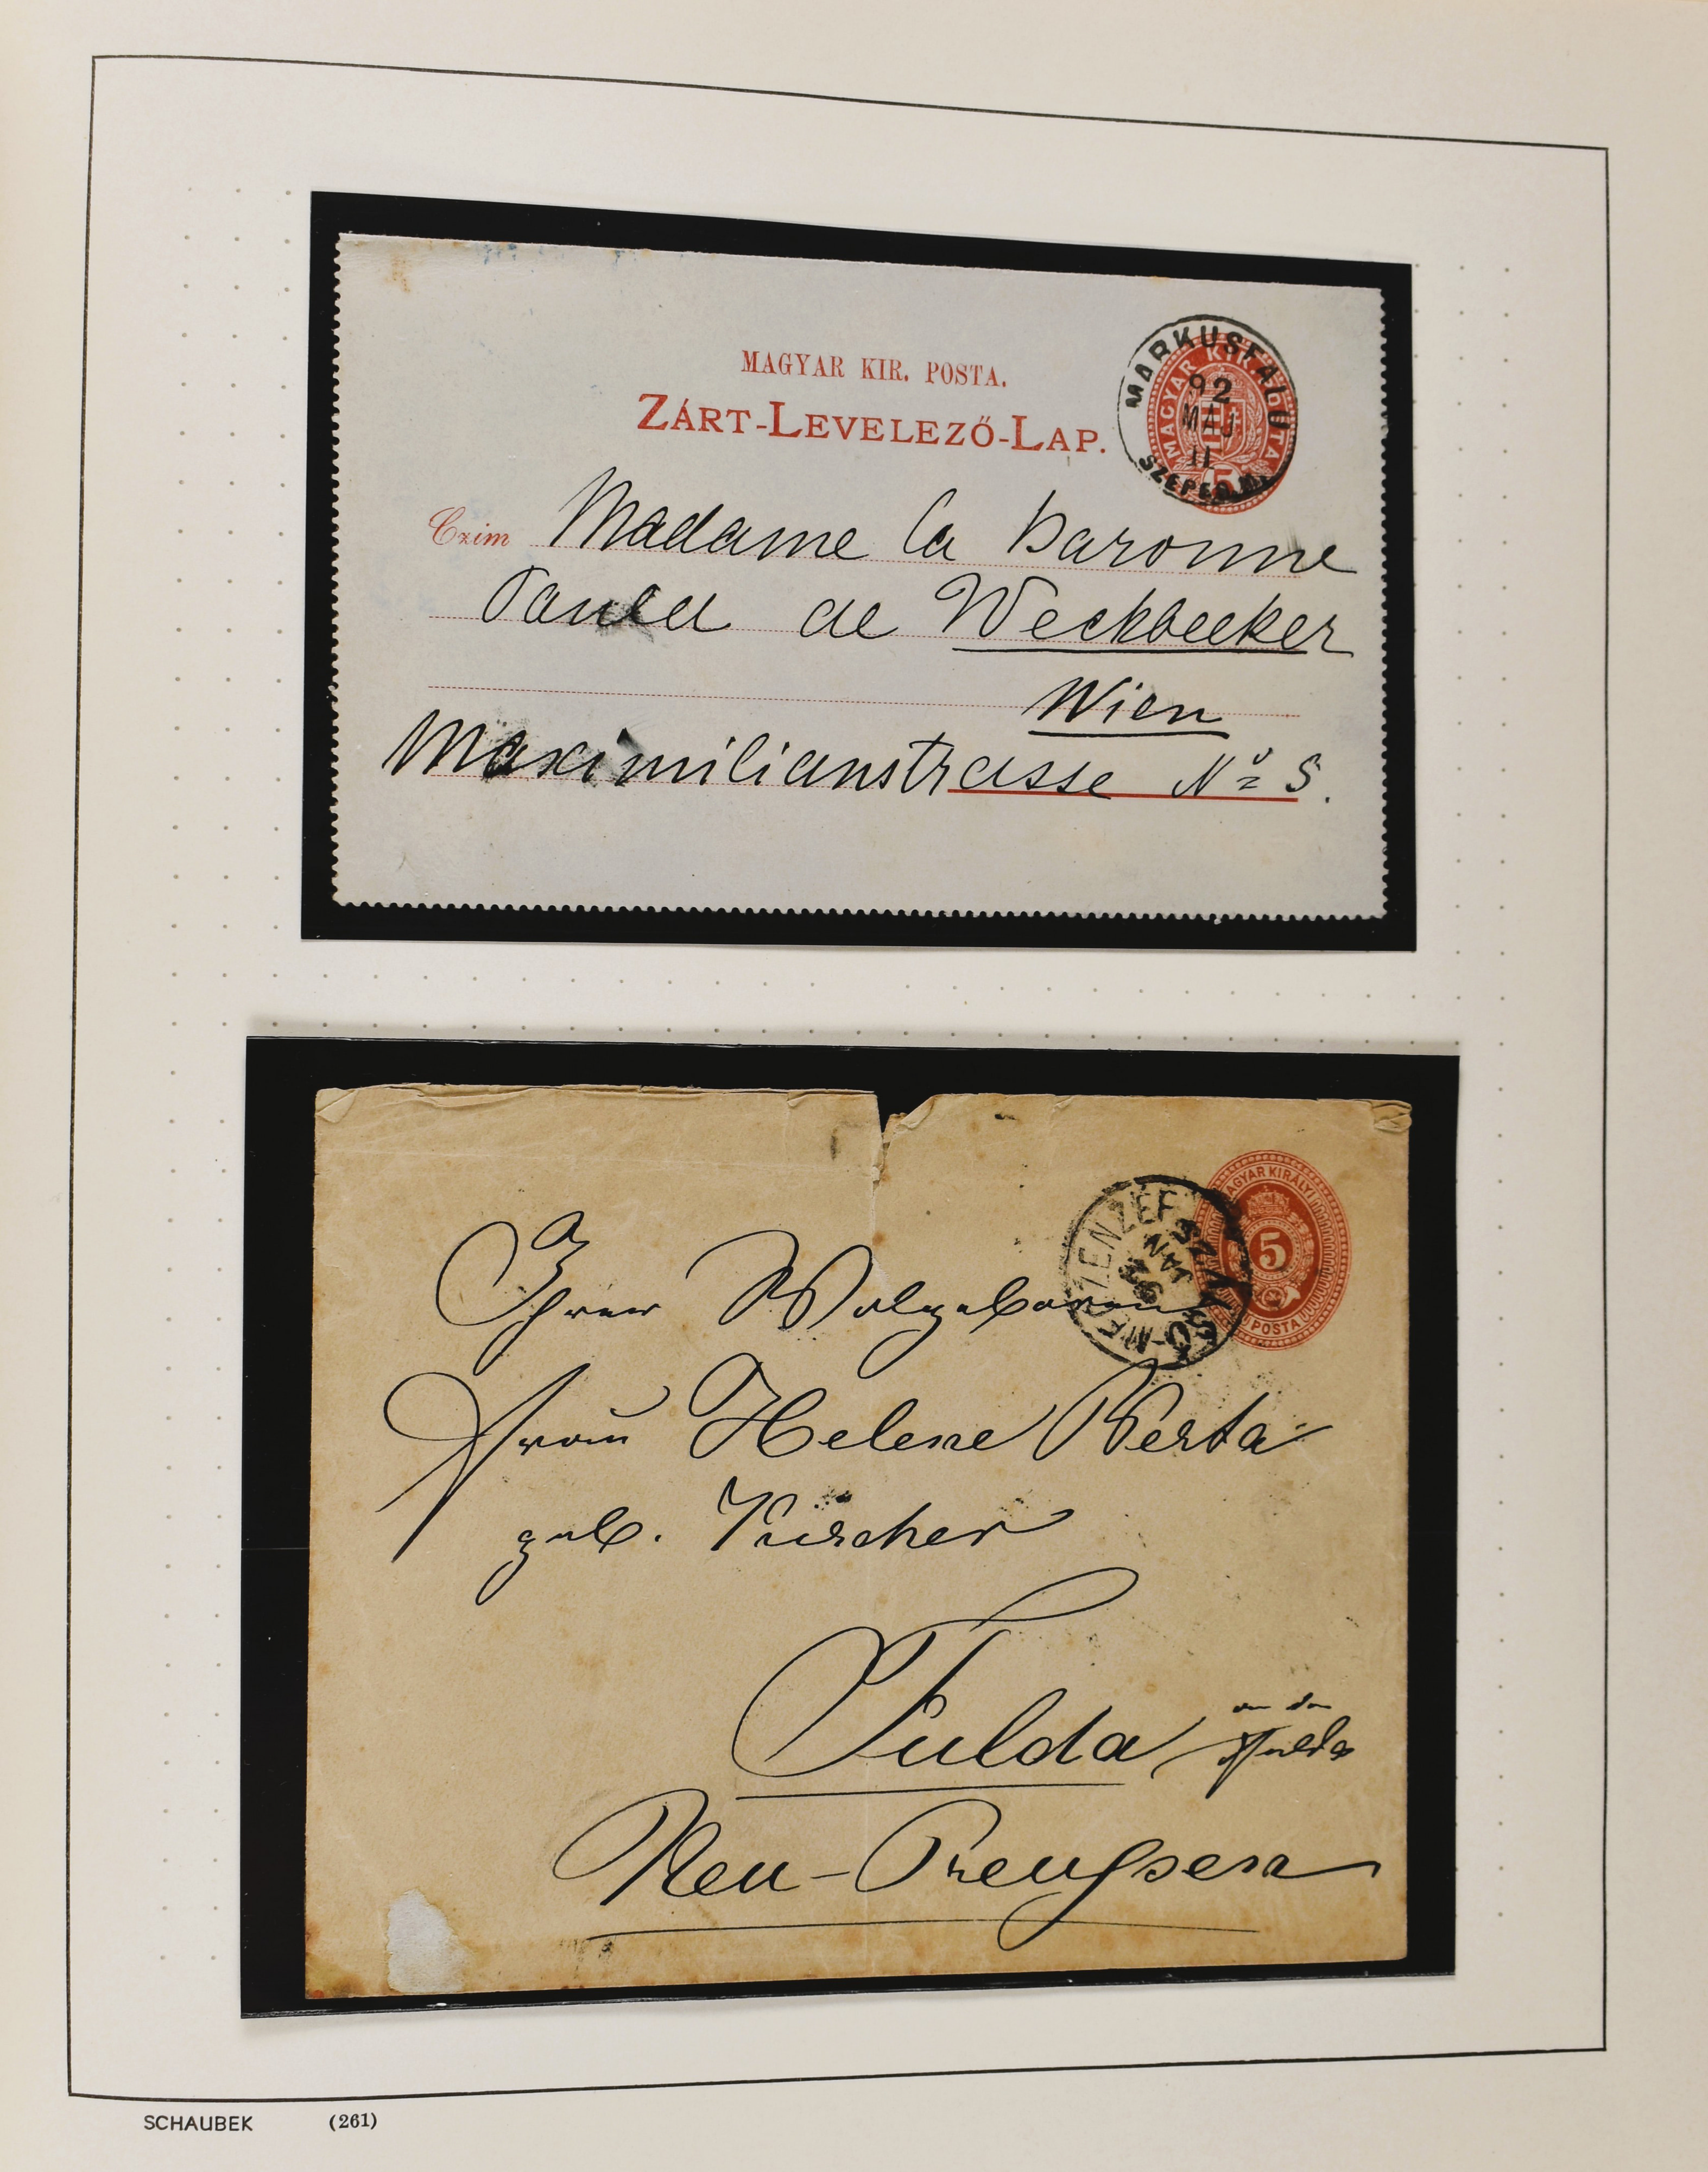 MAGYAR KIR. POSTA.
ZÁRT-LEVELEZŐ-LAP.
MARKUSFALU
92
MAJ
11
SZEPES M.
MAGYAR KIR. POSTA
5
Czim Madame la Baronne
Paula de Weckbecker
Wien
Maximilianstrasse No 5.
MAGYAR KIRÁLYI
5
POSTA
MECZENZEF
JAN
Ihrer Wolgeboren
Frau Helene Werta
geb. Fuscher
Fulda an der Fulda
Neu-Preußsen
SCHAUBEK (261)